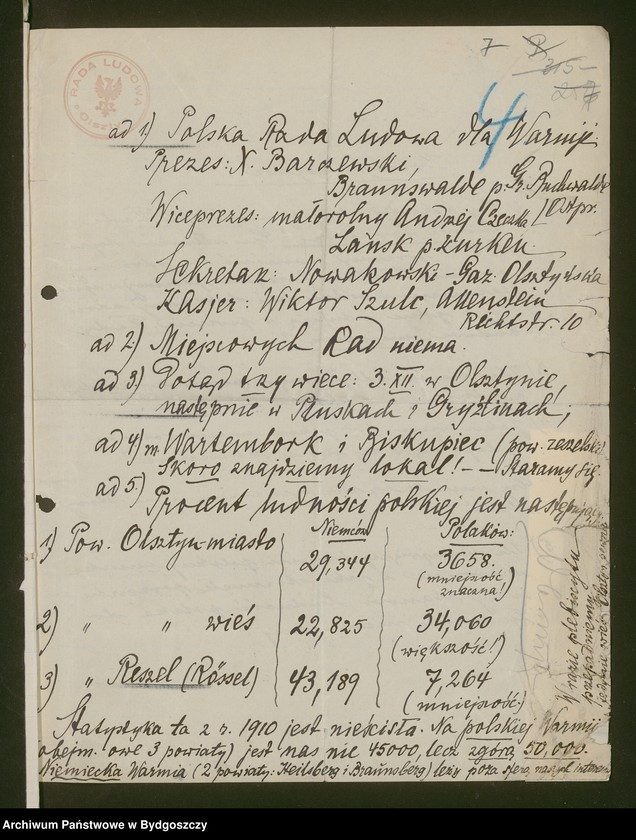 7
315
RADA LUDOWA
4
ad 1) Polska Rada Ludowa dla Warmji.
Prezes: X. Barczewski,
Braunswalde p. Gr. Buchwalde
Ostpr.
Wiceprezes: małorolny Andrzej Czeczka
Lansk p. Kurken
Sekretarz: Nowakowski - Gaz. Olsztyńska
Kasjer: Wiktor Szulc, Allenstein
Rechtstr. 10
ad 2) Miejscowych Rad niema.
ad 3) Dotąd trzy wiece: 3. XII. w Olsztynie,
następnie w Pluskach i Gryźlinach;
ad 4) Wartembork i Biskupiec (pow. reszelski)
Skoro znajdziemy lokal! - - Staramy się
ad 5) Procent ludności polskiej jest następujący
Niemców Polaków:
1) Pow. Olsztyn-miasto 29,344 3658.
(mniejszość
znaczna!)
2) " " wieś 22,825 34,060
(większość!)
3) " Reszel (Rössel) 43,189 7,264
(mniejszość.)
W razie plebiscytu
Statystyka ta z r. 1910 jest nieścisła. Na polskiej Warmji
(obejm. owe 3 powiaty) jest nas nie 45000, lecz zgórą 50,000.
Niemiecka Warmia (2 powiaty: Heilsberg i Braunsberg) leży poza sferą naszych
Archiwum Państwowe w Bydgoszczy